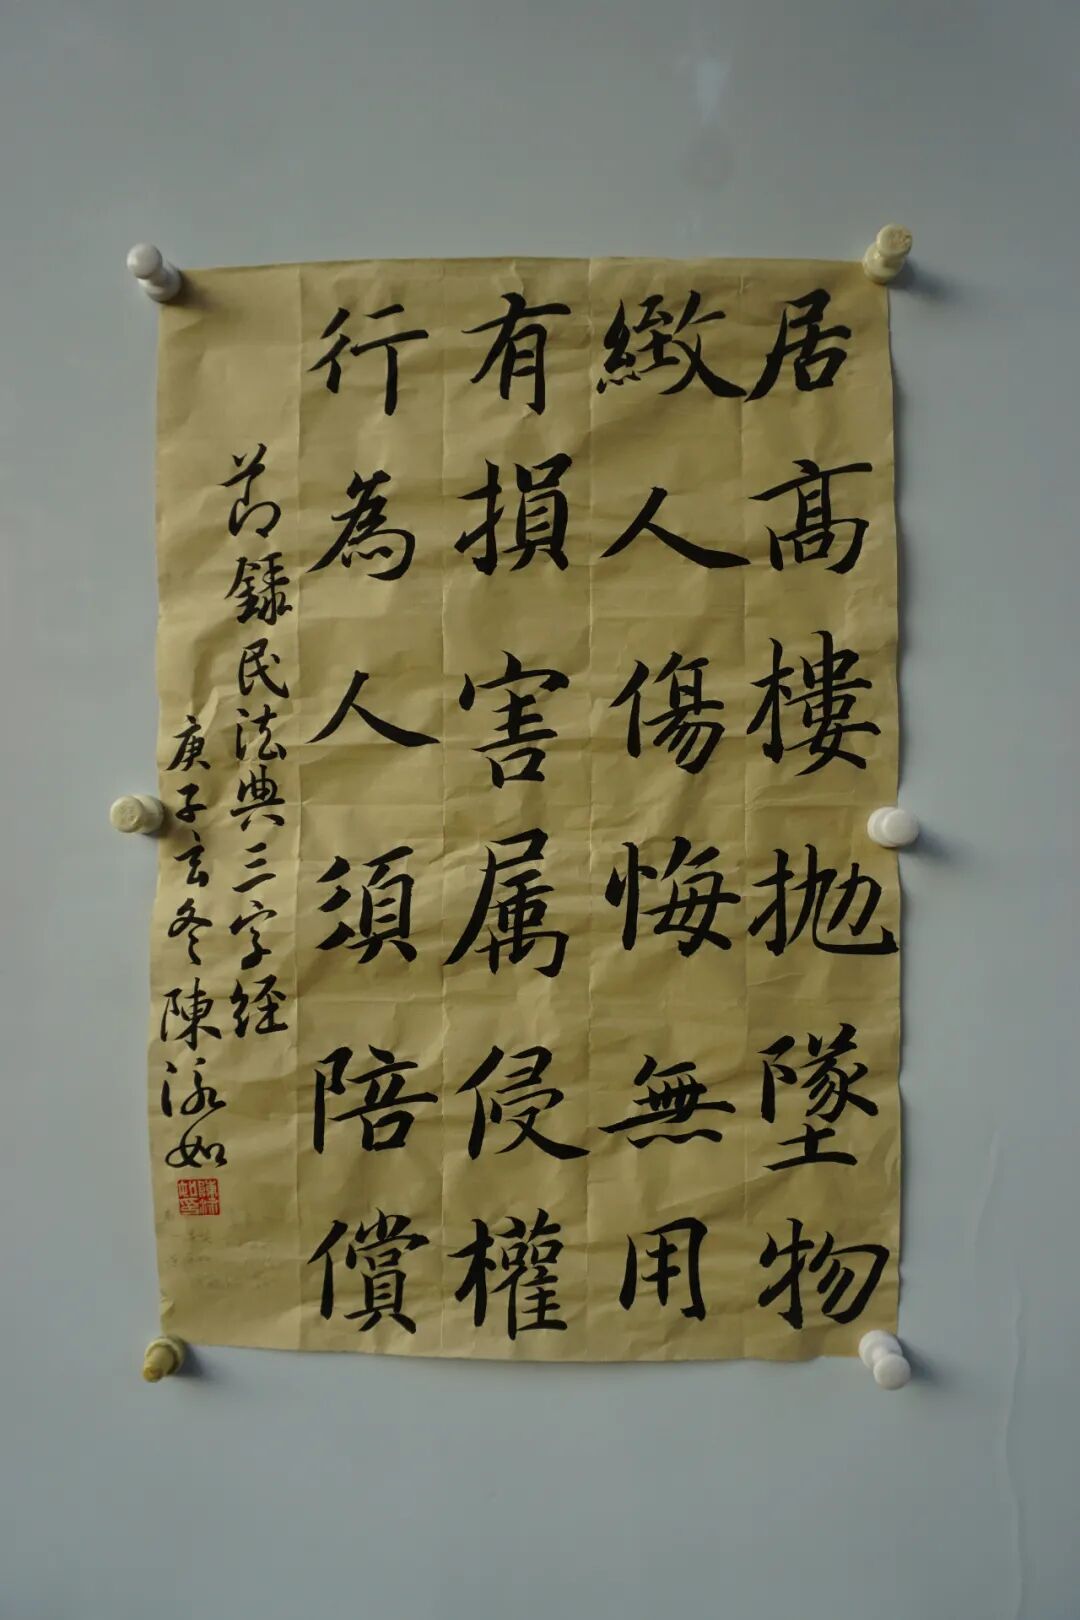 居高樓拋墜物
緻人傷悔無用
有損害属侵權
行為人須陪償
節錄民法典三字经
庚子玄冬陳泳如